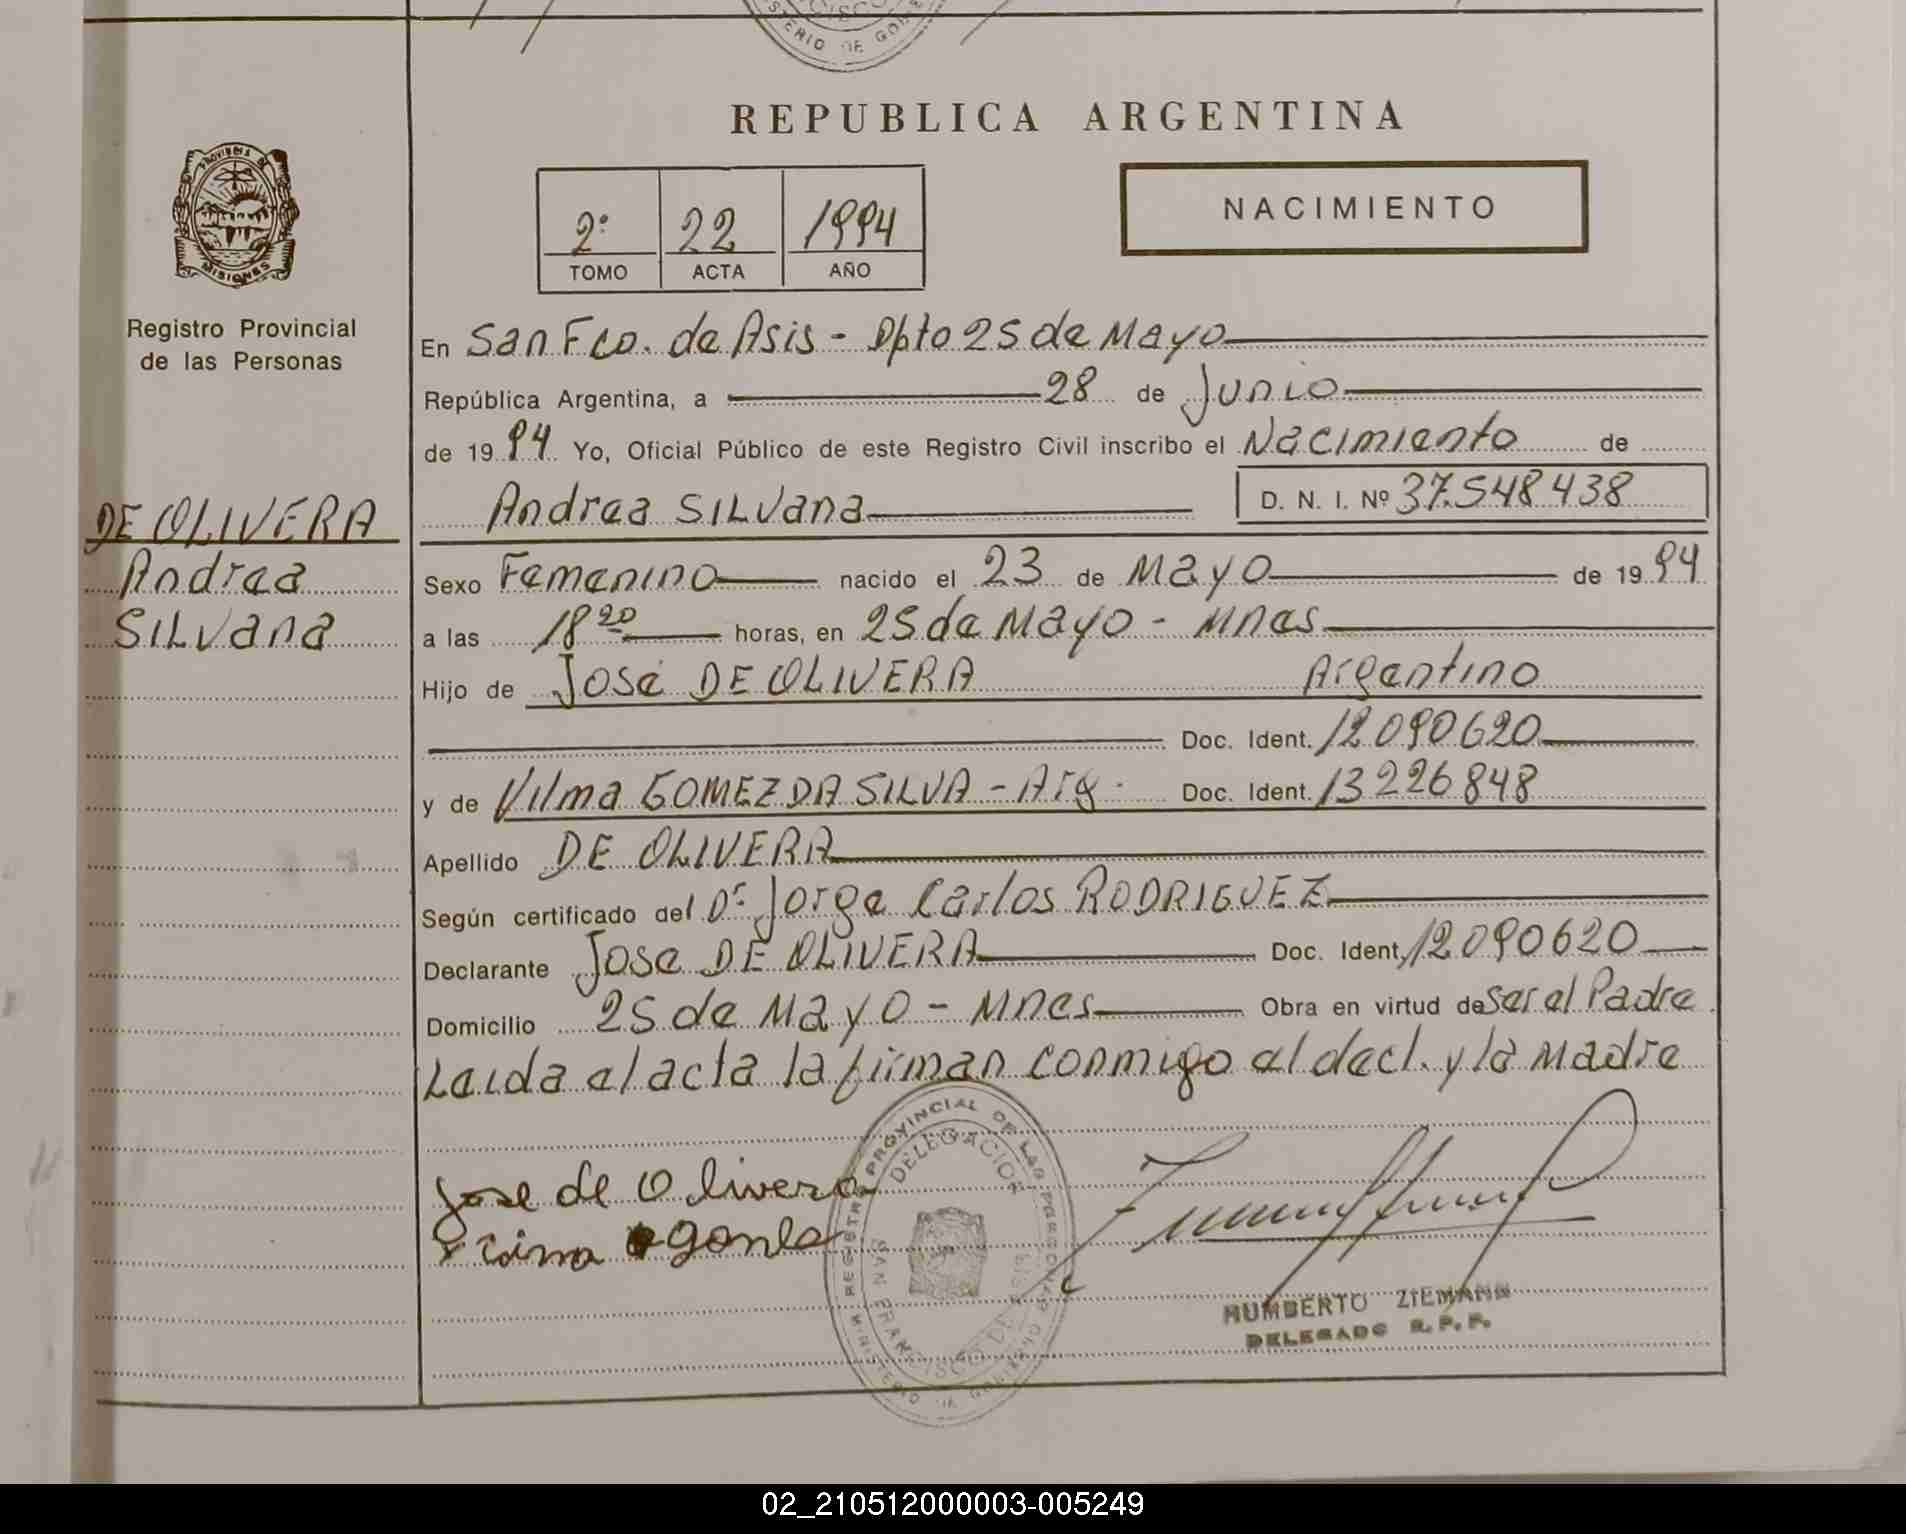 REPUBLICA ARGENTINA
PROVINCIA DE
MISIONES
Registro Provincial
de las Personas
2º 22 1994
TOMO ACTA AÑO
NACIMIENTO
En San Fco. de Asis - Dpto 25 de Mayo
República Argentina, a 28 de Junio
de 1994 Yo, Oficial Público de este Registro Civil inscribo el Nacimiento de
Andrea SILVana D. N. I. Nº 37.548.438
DE OLIVERA
Andrea
SILVana
Sexo Femenino nacido el 23 de Mayo de 1994
a las 18 20 horas, en 25 de Mayo - Mnes
Hijo de José DE OLIVERA Argentino
Doc. Ident. 12090620
y de Vilma GOMEZ DA SILVA - Arg. Doc. Ident. 13226848
Apellido DE OLIVERA
Según certificado del Dr. Jorge Carlos RODRIGUEZ
Declarante Jose DE OLIVERA Doc. Ident. 12090620
Domicilio 25 de Mayo - Mnes Obra en virtud de ser el Padre
Leida el acta la firman conmigo el decl. y la Madre
Jose de Olivera
REGISTRO PROVINCIAL DE LAS PERSONAS
DELEGACION
SAN FRANCISCO DE ASIS
MINISTERIO DE GOBIERNO
HUMBERTO ZIEMANN
DELEGADO R.P.P.
02_210512000003-005249